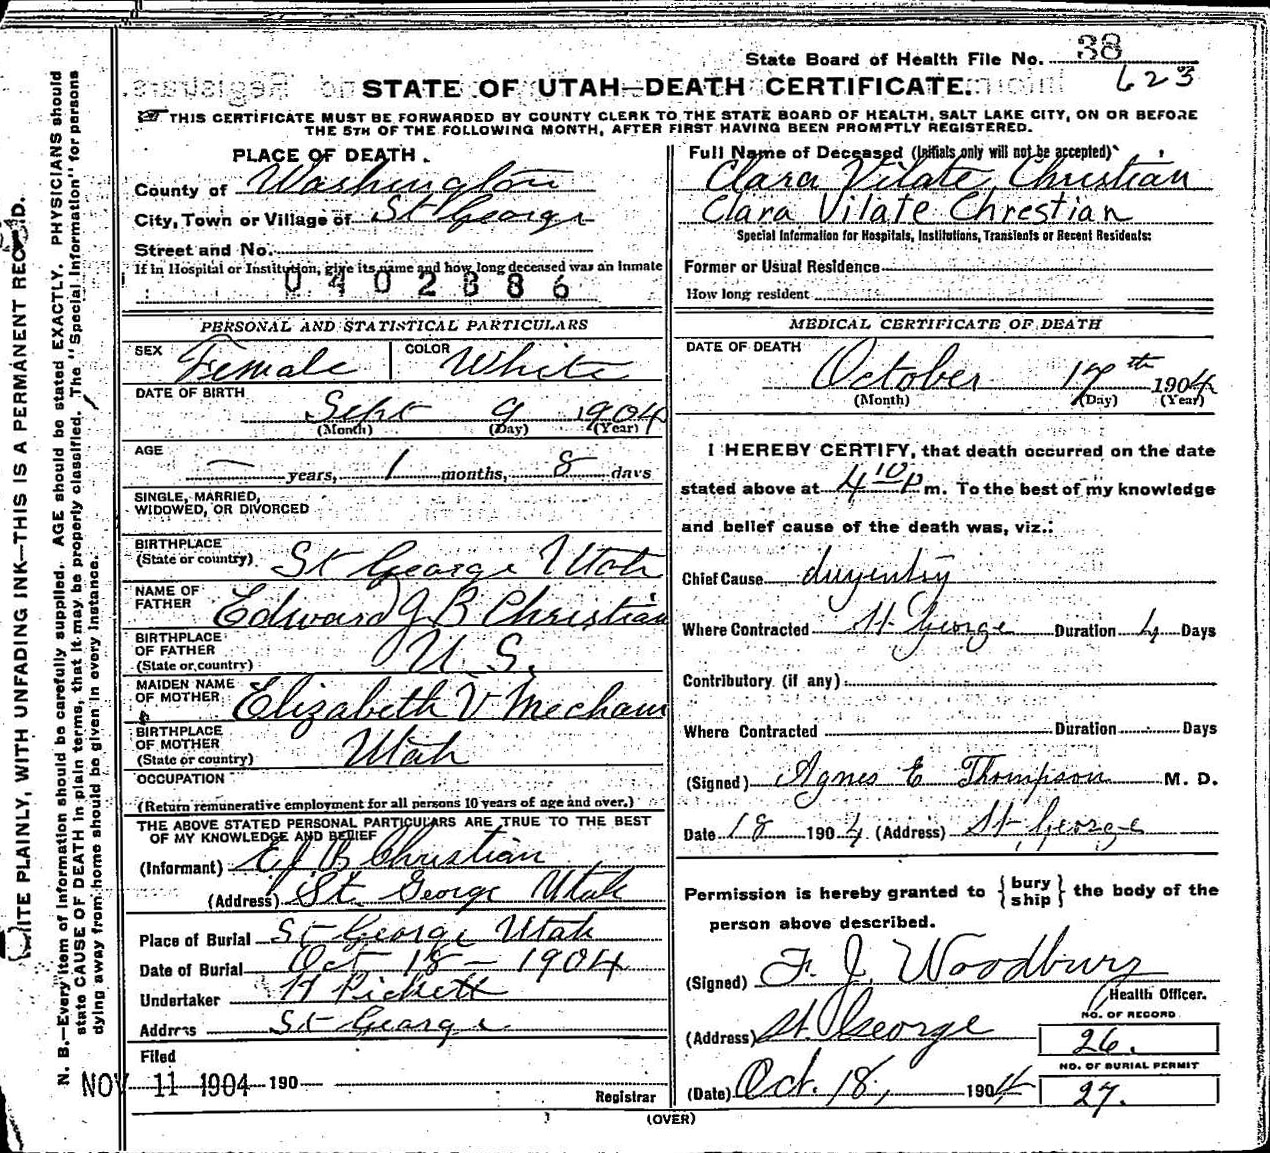 State Board of Health File No. 38
623
STATE OF UTAH—DEATH CERTIFICATE.
THIS CERTIFICATE MUST BE FORWARDED BY COUNTY CLERK TO THE STATE BOARD OF HEALTH, SALT LAKE CITY, ON OR BEFORE
THE 5TH OF THE FOLLOWING MONTH, AFTER FIRST HAVING BEEN PROMPTLY REGISTERED.
PLACE OF DEATH.
County of Washington
City, Town or Village of St George
Street and No.
If in Hospital or Institution, give its name and how long deceased was an inmate
0402886
PERSONAL AND STATISTICAL PARTICULARS
SEX Female COLOR White
DATE OF BIRTH
Sept 9 1904
(Month) (Day) (Year)
AGE
— years, 1 months, 8 days
SINGLE, MARRIED,
WIDOWED, OR DIVORCED
BIRTHPLACE
(State or country) St George Utah
NAME OF
FATHER Edward J B Christian
BIRTHPLACE
OF FATHER
(State or country) U. S.
MAIDEN NAME
OF MOTHER Elizabeth V Mecham
BIRTHPLACE
OF MOTHER
(State or country) Utah
OCCUPATION
(Return remunerative employment for all persons 10 years of age and over.)
THE ABOVE STATED PERSONAL PARTICULARS ARE TRUE TO THE BEST
OF MY KNOWLEDGE AND BELIEF
(Informant) E J B Christian
(Address) St. George Utah
Place of Burial St George Utah
Date of Burial Oct 18 - 1904
Undertaker H Pickett
Address St George
Filed
NOV 11 1904 190
Registrar
Full Name of Deceased (Initials only will not be accepted)
Clara Vilate Christian
Clara Vilate Chrestian
Special Information for Hospitals, Institutions, Transients or Recent Residents:
Former or Usual Residence
How long resident
MEDICAL CERTIFICATE OF DEATH
DATE OF DEATH
October 17th 1904
(Month) (Day) (Year)
I HEREBY CERTIFY, that death occurred on the date
stated above at 4 10 p m. To the best of my knowledge
and belief cause of the death was, viz.:
Chief Cause dysentry
Where Contracted St George Duration 4 Days
Contributory (if any)
Where Contracted Duration Days
(Signed) Agnes E Thompson M. D.
Date 18 1904 (Address) St George
Permission is hereby granted to { bury
ship } the body of the
person above described.
(Signed) F. J. Woodbury
Health Officer.
(Address) St. George
NO. OF RECORD
26.
NO. OF BURIAL PERMIT
27.
(Date) Oct. 18, 1904
(OVER)
WRITE PLAINLY, WITH UNFADING INK—THIS IS A PERMANENT RECORD.
N. B.—Every item of information should be carefully supplied. AGE should be stated EXACTLY. PHYSICIANS should
state CAUSE OF DEATH in plain terms, that it may be properly classified. The "Special Information" for persons
dying away from home should be given in every instance.